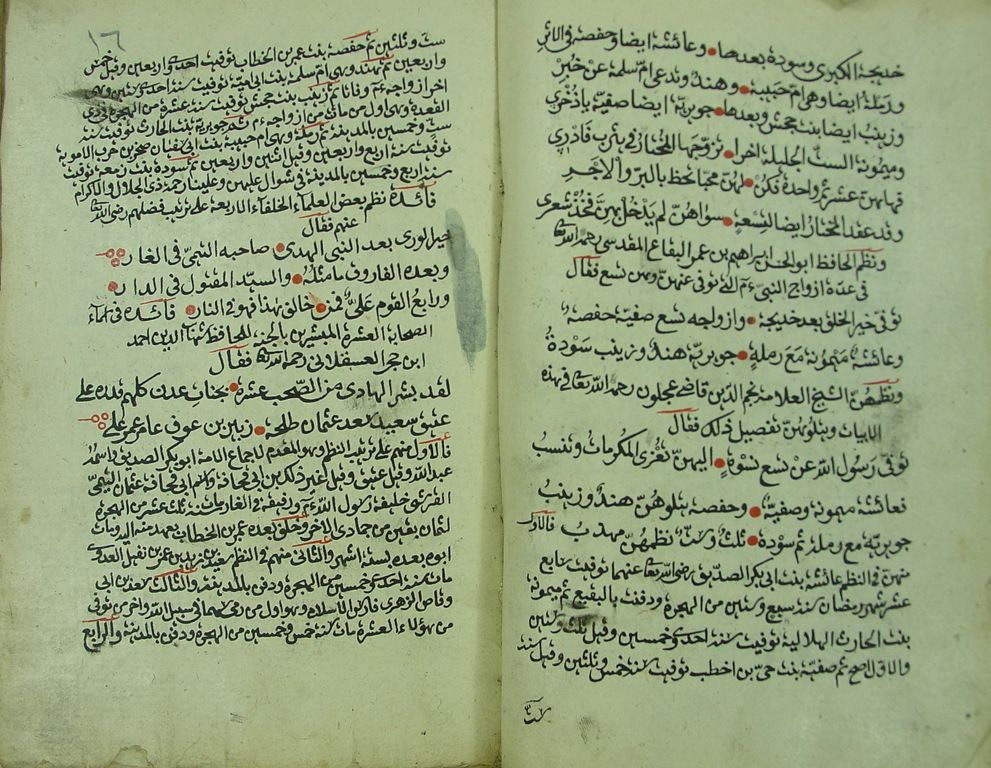 خديجة الكبرى وسودة بعدها وعائشة ايضا وحفصة في الاثر
ورملة ايضا وهي ام حبيبة وهند وتدعى ام سلمة عن خبر
وزينب ايضا بنت جحش وبعدها جويرية ايضا صفية ياذخري
وميمونة الست الجليلة اخرا تزوجها المختار في يثرب فادري
فهاهن عشر ثم واحدة فكن لهن محبا تحظ بالبر والاجر
وقد عقد المختار ايضا لتسعة سواهن لم يدخل بهن فخذ شعري
ونظم الحافظ ابو الحسن ابراهيم بن عمر البقاعي المقدسي رحمه الله
في عدة ازواج النبي ءم التي توفي عنهن وهن تسع فقال
توفي خير الخلق بعد خديجة وازواجه تسع صفية حفصة
وعائشة ميمونة مع رملة جويرية هند وزينب سودة
ونظمهن الشيخ العلامة نجم الدين قاضي عجلون رحمه الله تعا في هذه
الابيات وبتلوتهن تفصيل ذلك فقال
توفي رسول الله عن تسع نسوة اليهن تعزى المكرمات وتنسب
فعائشة ميمونة وصفية وحفصة يتلوهن هند وزينب
جويرية مع رملة ثم سودة ثلث وست نظمهن مهذب فالاولى
منهن في النظم عائشة بنت ابي بكر الصديق رضي الله تعا عنهما توفيت تابع
عشر شهر رمضان سنة سبع وستين من الهجرة ودفنت بالبقيع ثم ميمونة
بنت الحارث الهلالية توفيت سنة احدى وخمسين وقيل ثلث وستين
والاول اصح ثم صفية بنت حيي بن اخطب توفيت سنة خمس وثلثين وقيل سنة
ست
١٦
ست وثلثين ثم حفصة بنت عمر بن الخطاب توفيت احدى واربعين وقيل خمس
واربعين ثم هند وهي ام سلمة بنت ابي امية توفيت سنة احدى ستين وهي
اخر ازواجه ءم وفاتا ثم زينب بنت جحش توفيت سنة عشرة من الهجرة في ذي
القعدة وهي اول من مات من ازواجه ءم ثم جويرية بنت الحارث توفيت سنة
ست وخمسين بالمدينة ثم رملة وهي ام حبيبة بنت ابي سفيان صخر بن حرب الاموية
توفيت سنة اربع واربعين وقيل اثنين واربعين ثم سودة بنت زمعة توفيت
سنة اربع وخمسين بالمدينة في شوال عليهن وعلينا رحمة ذي الجلال والاكرام
فائدة نظم بعض العلماء الخلفاء الاربعة على ترتيب فضلهم رضي الله
عنهم فقال
خير الورى بعد النبي المهدي صاحبه التيمي في الغار
وبعده الفاروق ما مثله والسيد المقتول في الدار
ورابع القوم علي فمن خالف هذا فهو في النار فائدة في اسماء
الصحابة العشرة المبشرين بالجنة للحافظ شهاب الدين احمد
ابن حجر العسقلاني رحمه الله تعا فقال
لقد بشر الهادي من الصحب عشرة بجنات عدن كلهم قدره علي
عتيق سعيد سعد عثمان طلحة زبير بن عوف عامر عمر علي
فالاول منهم على ترتيب النظم وهو المقدم لاجماع الامة ابو بكر الصديق واسمه
عبد الله وقيل عتيق وقيل غير ذلك بن ابي قحافة واسم ابي قحافة عثمان التيمي
القرشي خليفة رسول الله ءم ورفيقه في الغار مات سنة ثلث عشر من الهجرة
لثمان بقين من جمادى الاخر وخلف بعده عمر بن الخطاب بعهد منه اليه ومات
ابوه بعده بستة اشهر والثاني منهم في النظم سعيد بن زيد بن عمر بن نفيل العدوي
مات سنة احدى وخمسين من الهجرة ودفن بالمدينة والثالث سعد بن ابي
وقاص الزهري فارس الاسلام وهو اول من رمى بسهم في سبيل الله واخر من توفي
من هؤلاء العشرة مات سنة خمس وخمسين من الهجرة ودفن بالمدينة والرابع